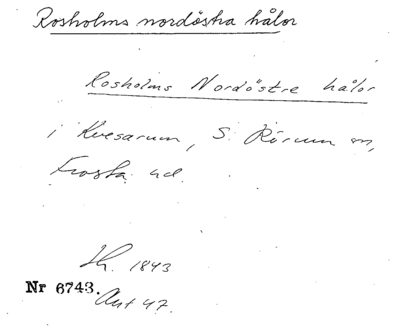 Rosholms nordöstra hålor
Rosholms Nordöstre hålor
i Kvesarum, S. Rörum sn,
Frosta hd.
Lh. 1843
Nr 6743.
Ant 47.